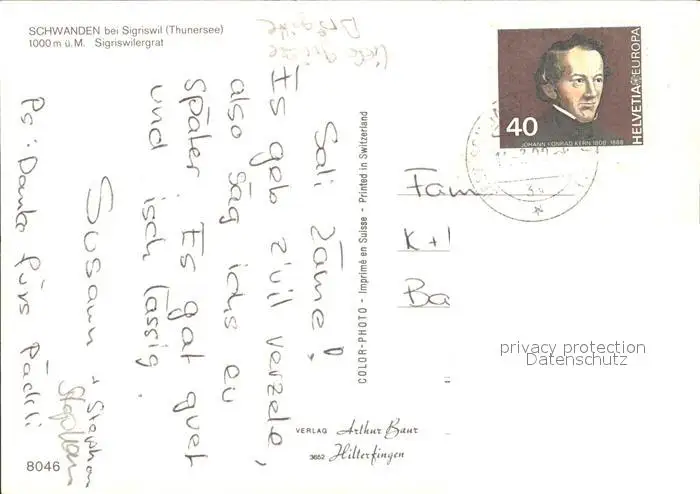 SCHWANDEN bei Sigriswil (Thunersee)
1000 m ü. M. Sigriswilergrat
Sali zäme!
Es geb z'vil verzele,
also säg ichs eu
später. Es gat guet
und isch lässig.
Susann + Stephan
Stephan
Ps: Danke fürs Päckli
COLOR-PHOTO - Imprimé en Suisse - Printed in Switzerland
40
JOHANN KONRAD KERN 1808 1888
HELVETIA EUROPA
Fam
K +
Ba
privacy protection
Datenschutz
VERLAG Arthur Baur
3652 Hilterfingen
8046